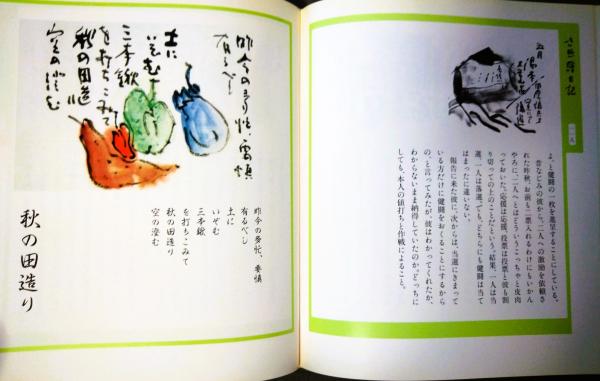 一一八
よ、と健闘の一枚を進呈することにしている。
昔なじみの彼から、二人への激励を依頼さ
れた昨秋、お前も二票入れるわけにもいかん
やろに、二人へとはどういうこっちゃと皮肉
っておいた。応援は応援、投票は投票と彼も割
り切っての上のことだという。結果、一人は当
選、一人は落選。でも、どちらにも健闘は当て
はまったに違いない。
報告に来た彼に、次からは、当選にきまって
いる方だけに健闘をおくることにするから
の、と言ってみたが、彼はわかってくれたか、
わからないまま納得していたのか。どっちに
しても、本人の値打ちと作戦によること。
昨今の多忙、要慎
有るべし
土に
いぞむ
三本鍬
を打ちこみて
秋の田造り
空の澄む
昨今の多忙、要慎
有るべし
土に
いぞむ
三本鍬
を打ちこみて
秋の田造り
空の澄む
秋の田造り